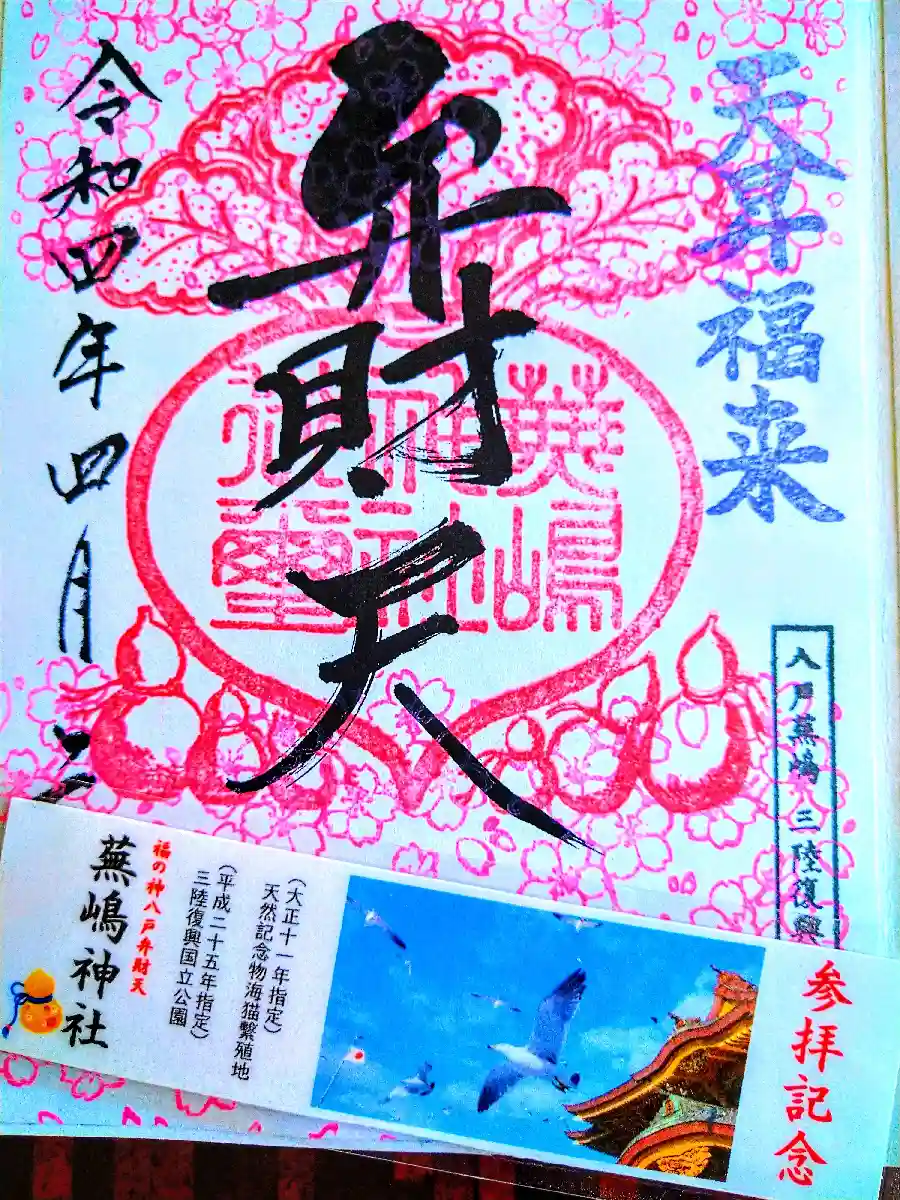 天昇福来
八戸蕪嶋 三陸復興
弁財天
蕪嶋
神社
御璽
令和四年四月
参拝記念
(大正十一年指定)
天然記念物海猫繁殖地
(平成二十五年指定)
三陸復興国立公園
福の神八戸弁財天
蕪嶋神社